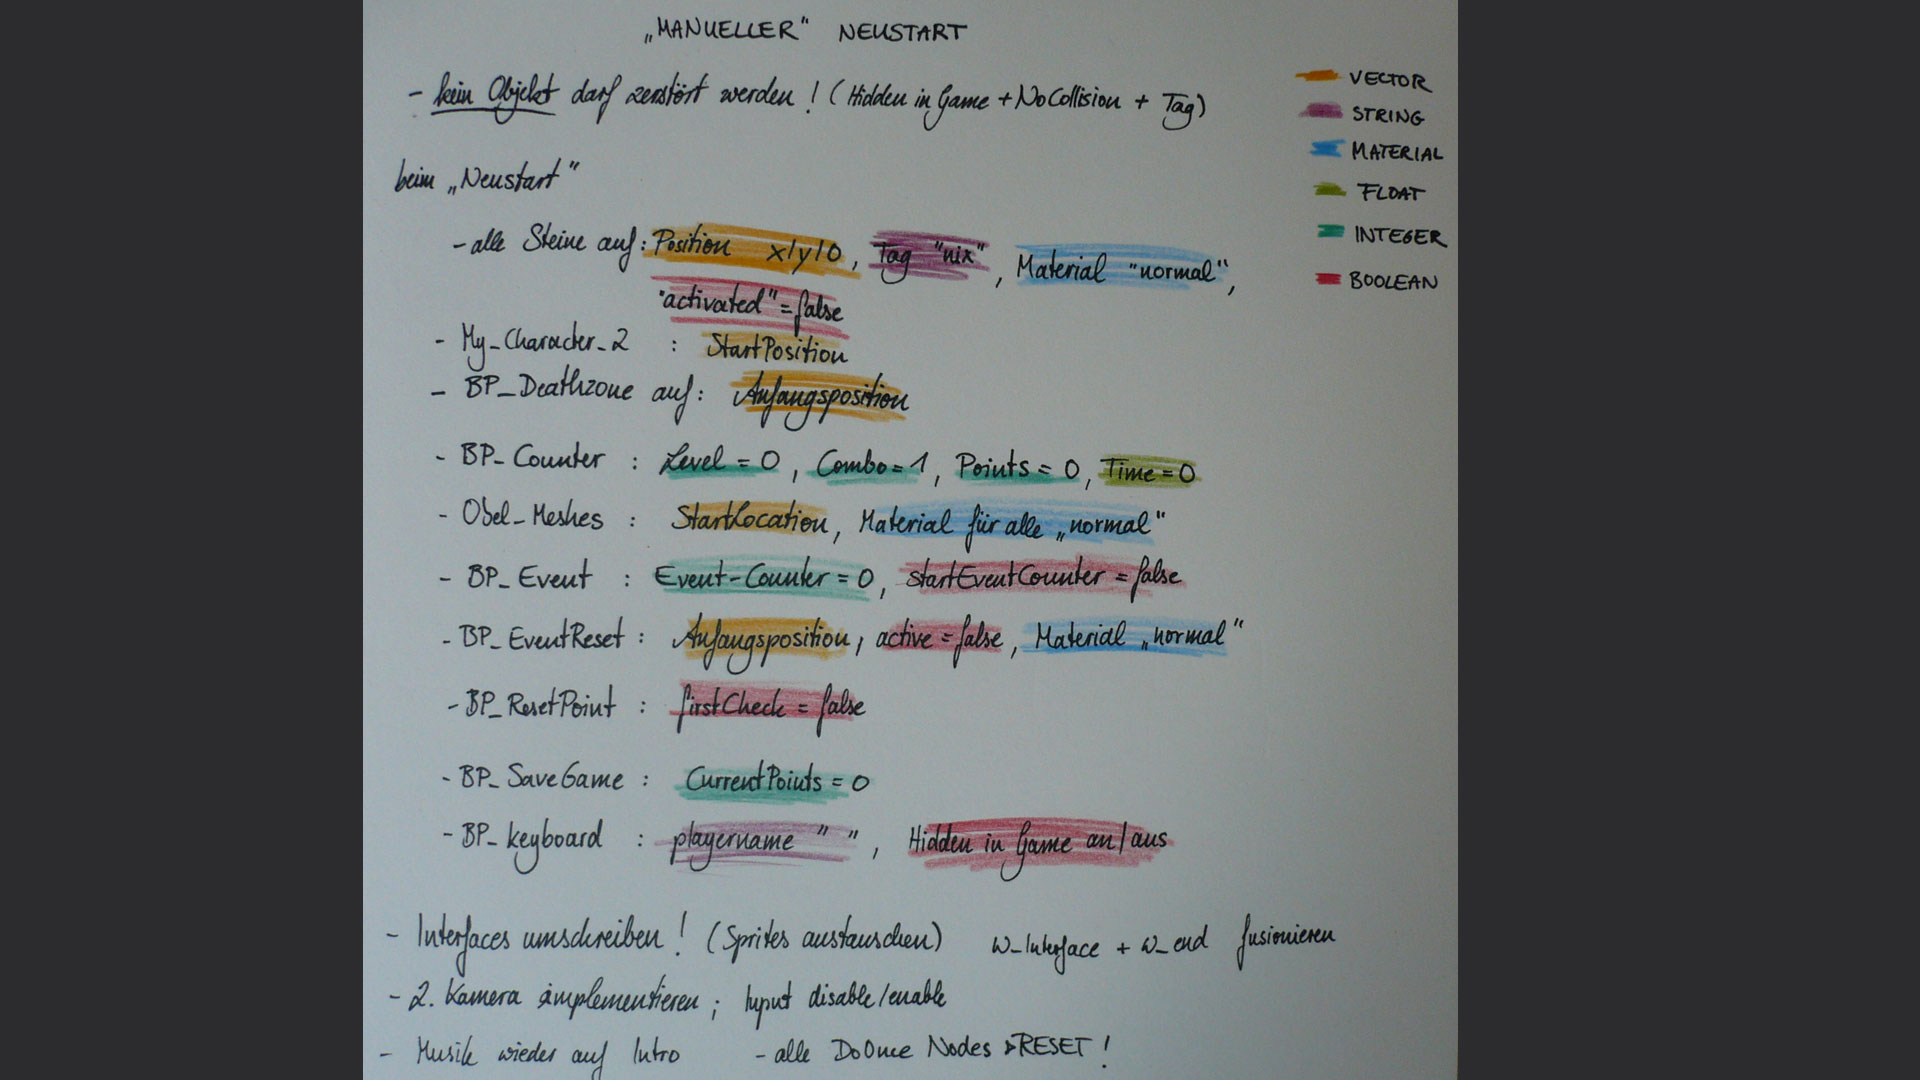 „MANUELLER“ NEUSTART
- kein Objekt darf zerstört werden! (Hidden in Game + NoCollision + Tag)
VECTOR
STRING
MATERIAL
FLOAT
INTEGER
BOOLEAN
beim „Neustart“
- alle Steine auf: Position x/y/0, Tag "nix", Material "normal",
"activated" = false
- My_Character_2 : StartPosition
- BP_Deathzone auf: Anfangsposition
- BP_Counter : Level = 0, Combo = 1, Points = 0, Time = 0
- Obel_Meshes : StartLocation, Material für alle „normal“
- BP_Event : Event-Counter = 0, startEventCounter = false
- BP_EventReset : Anfangsposition, active = false, Material „normal“
- BP_ResetPoint : firstCheck = false
- BP_SaveGame : CurrentPoints = 0
- BP_keyboard : playername " ", Hidden in Game an/aus
- Interfaces umschreiben! (Sprites austauschen) W_Interface + W_end fusionieren
- 2. Kamera implementieren; Input disable/enable
- Musik wieder auf Intro - alle DoOnce Nodes > RESET!